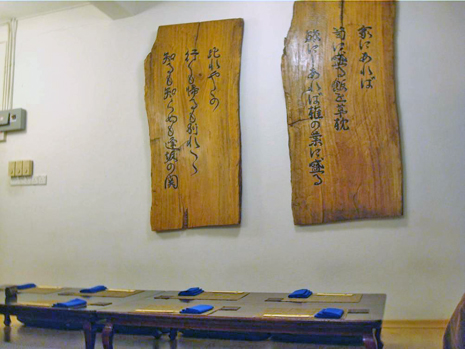 家にあれば
笥に盛る飯を草枕
旅にしあれば椎の葉に盛る
此れやこの
行くも帰るも別れつゝ
知るも知らぬも逢坂の関